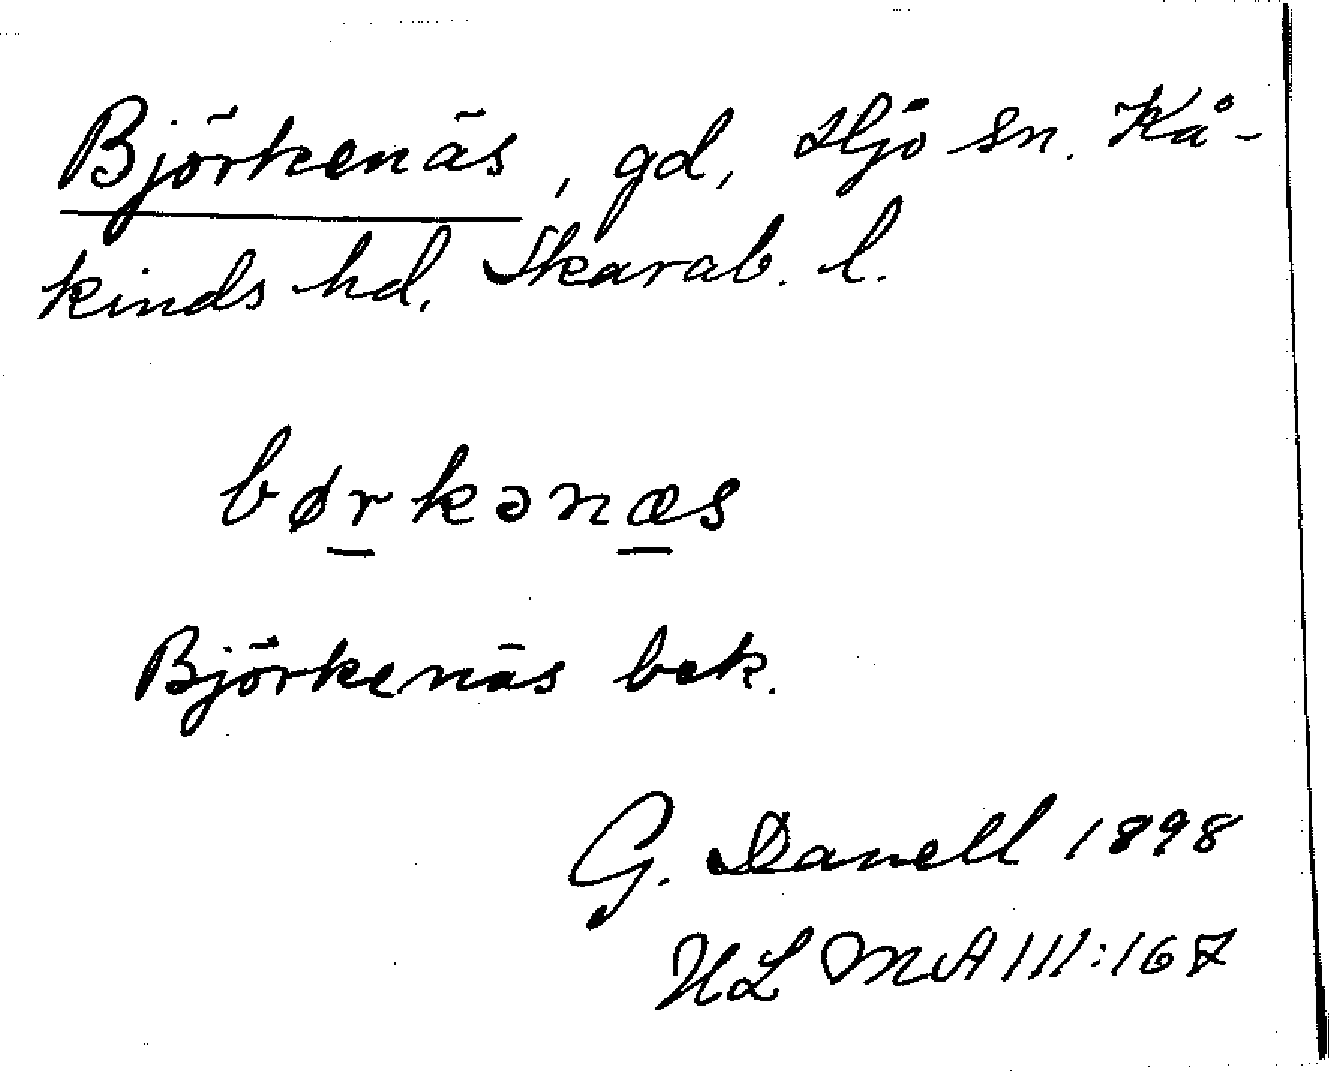 Björkenäs, gd, Hjo sn. Kå-
kinds hd, Skarab. l.
børkənæs
Björkenäs bek.
G. Danell 1898
ULMA 111:167